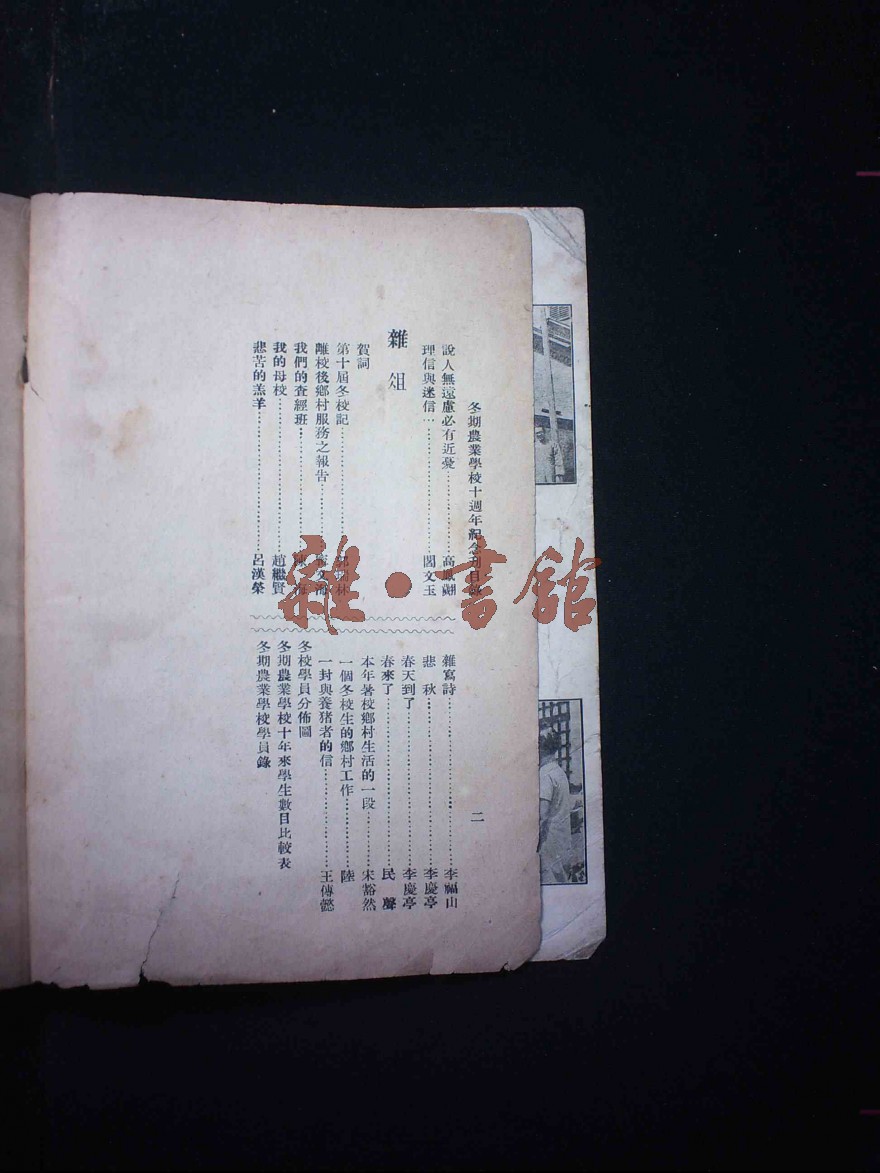 冬期農業學校十週年紀念刊目錄
二
說人無遠慮必有近憂……高 翽
理信與迷信……閻文玉
雜俎
賀詞
第十屆冬校記……林
離校後鄉村服務之報告……文海
我們的查經班……陳 海
我的母校……趙繼賢
悲苦的羔羊……呂漢榮
雜寫詩……李福山
悲秋……李慶亭
春天到了……李慶亭
春來了……民聲
本年暑校鄉村生活的一段……宋豁然
一個冬校生的鄉村工作……陸
一封與養猪者的信……王傳懿
冬校學員分佈圖
冬期農業學校十年來學生數目比較表
冬期農業學校學員錄
雜·書館